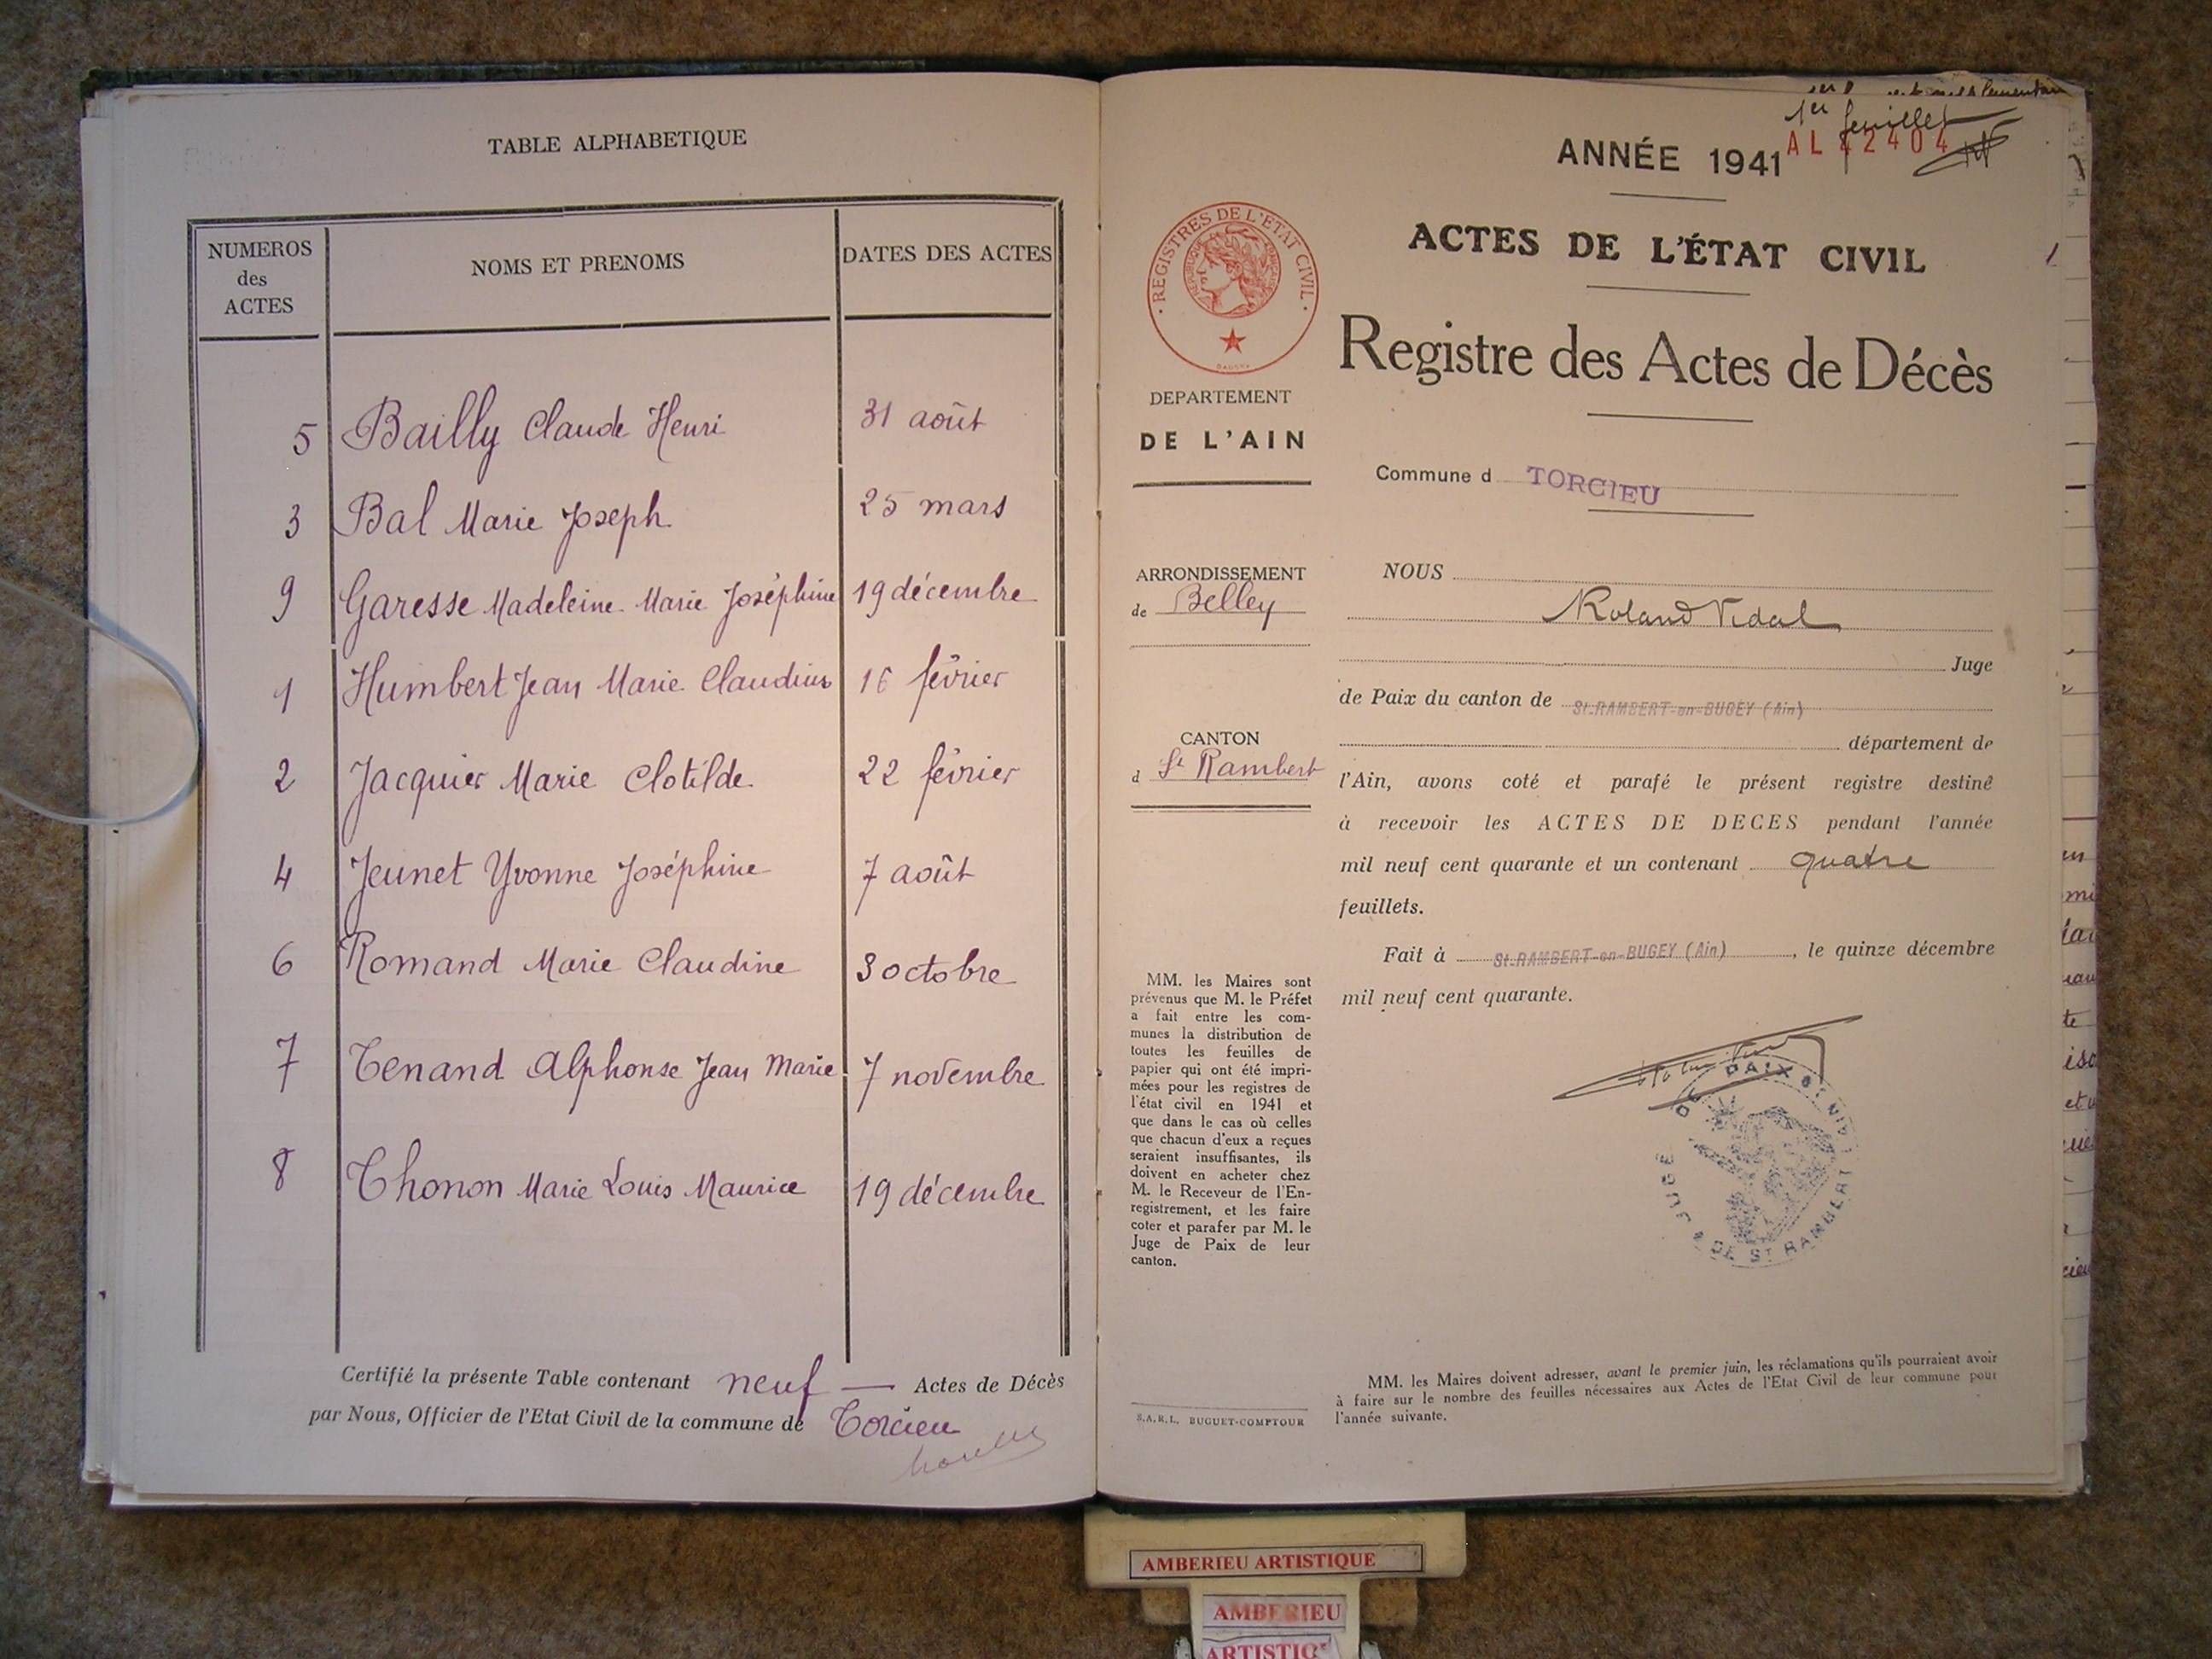 TABLE ALPHABETIQUE
NUMEROS des ACTES NOMS ET PRENOMS DATES DES ACTES
5 Bailly Claude Henri 31 août
3 Bal Marie Joseph 25 mars
9 Garesse Madeleine Marie Joséphine 19 décembre
1 Humbert Jean Marie Claudius 16 février
2 Jacquier Marie Clotilde 22 février
4 Jeunet Yvonne Joséphine 7 août
6 Romand Marie Claudine 3 octobre
7 Tenand Alphonse Jean Marie 7 novembre
8 Thonon Marie Louis Maurice 19 décembre
Certifié la présente Table contenant neuf — Actes de Décès
par Nous, Officier de l'Etat Civil de la commune de Torcieu
1er feuillet
AL 42404
ANNÉE 1941
ACTES DE L'ÉTAT CIVIL
1
Registre des Actes de Décès
· REGISTRES DE L'ETAT CIVIL ·
REPUBLIQUE FRANÇAISE
DEPARTEMENT
DE L'AIN
Commune d TORCIEU
ARRONDISSEMENT
de Belley
CANTON
d St Rambert
NOUS
Roland Vidal
Juge
de Paix du canton de St.RAMBERT-en-BUGEY (Ain)
département de
l'Ain, avons coté et parafé le présent registre destiné
à recevoir les ACTES DE DECES pendant l'année
mil neuf cent quarante et un contenant quatre
feuillets.
Fait à St.RAMBERT-en-BUGEY (Ain), le quinze décembre
mil neuf cent quarante.
MM. les Maires sont
prévenus que M. le Préfet
a fait entre les com-
munes la distribution de
toutes les feuilles de
papier qui ont été impri-
mées pour les registres de
l'état civil en 1941 et
que dans le cas où celles
que chacun d'eux a reçues
seraient insuffisantes, ils
doivent en acheter chez
M. le Receveur de l'En-
registrement, et les faire
coter et parafer par M. le
Juge de Paix de leur
canton.
S.A.R.L. BUGUET-COMPTOUR
JUGE DE PAIX
DE ST RAMBERT
MM. les Maires doivent adresser, avant le premier juin, les réclamations qu'ils pourraient avoir
à faire sur le nombre des feuilles nécessaires aux Actes de l'Etat Civil de leur commune pour
l'année suivante.
AMBERIEU ARTISTIQUE
AMBERIEU
ARTISTIQ